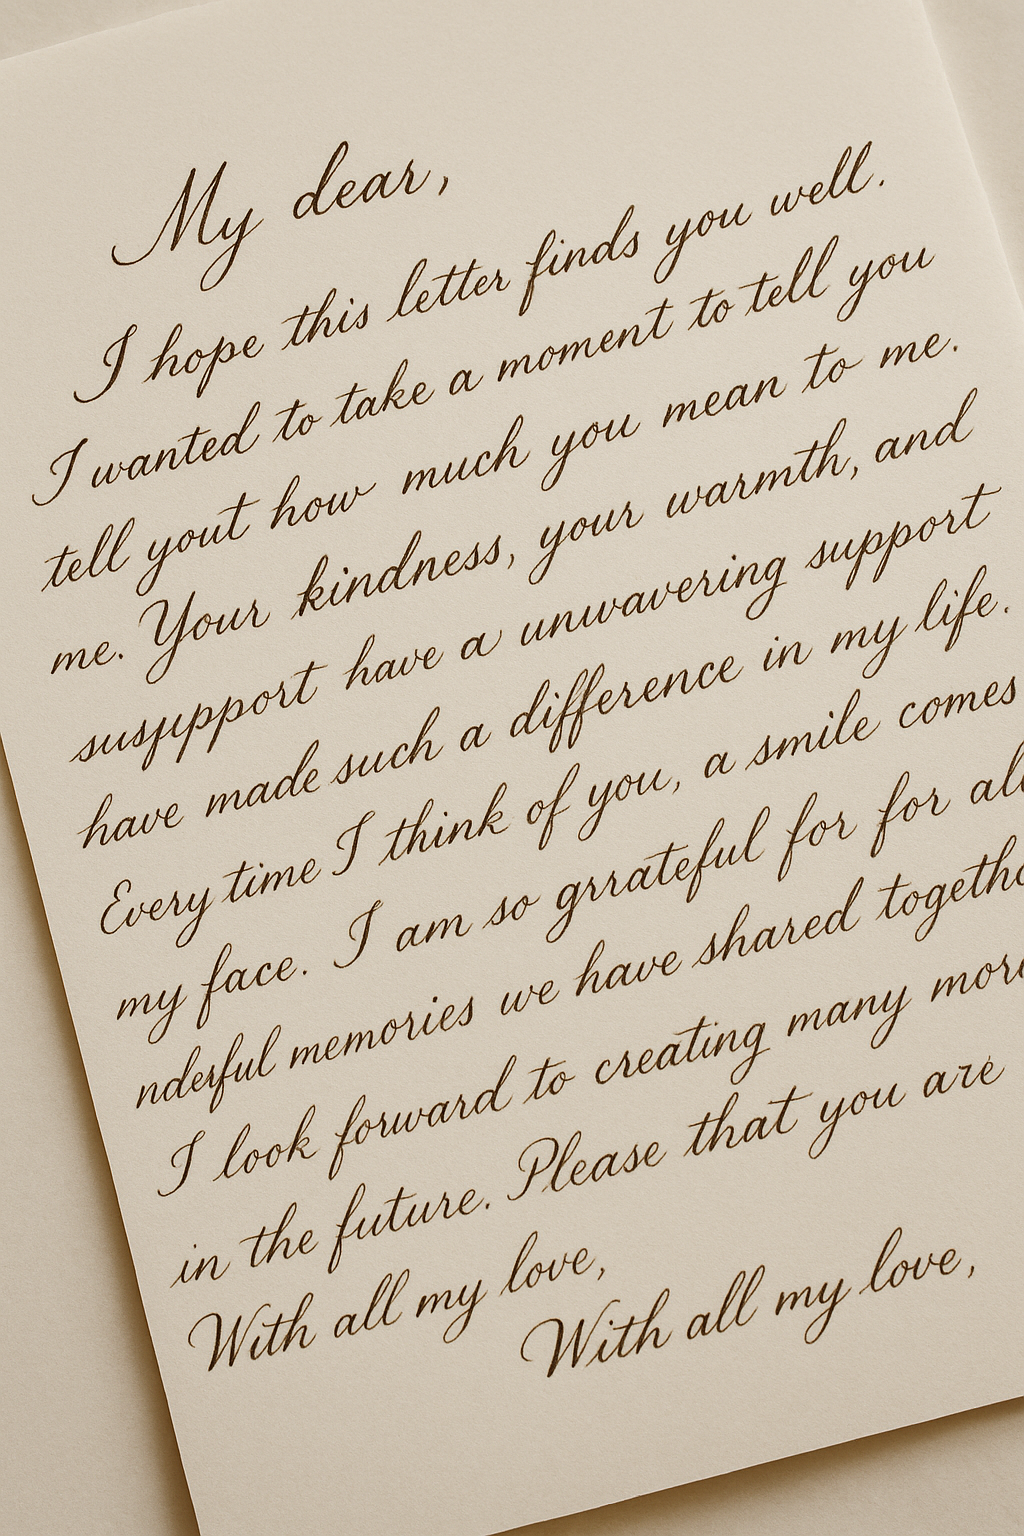 My dear,
I hope this letter finds you well.
I wanted to take a moment to tell you
tell yout how much you mean to me.
me. Your kindness, your warmth, and
susjupport have a unwavering support
have made such a difference in my life.
Every time I think of you, a smile comes
my face. I am so grrateful for for all
nderful memories we have shared togethe
I look forward to creating many more
in the future. Please that you are
With all my love,
With all my love,